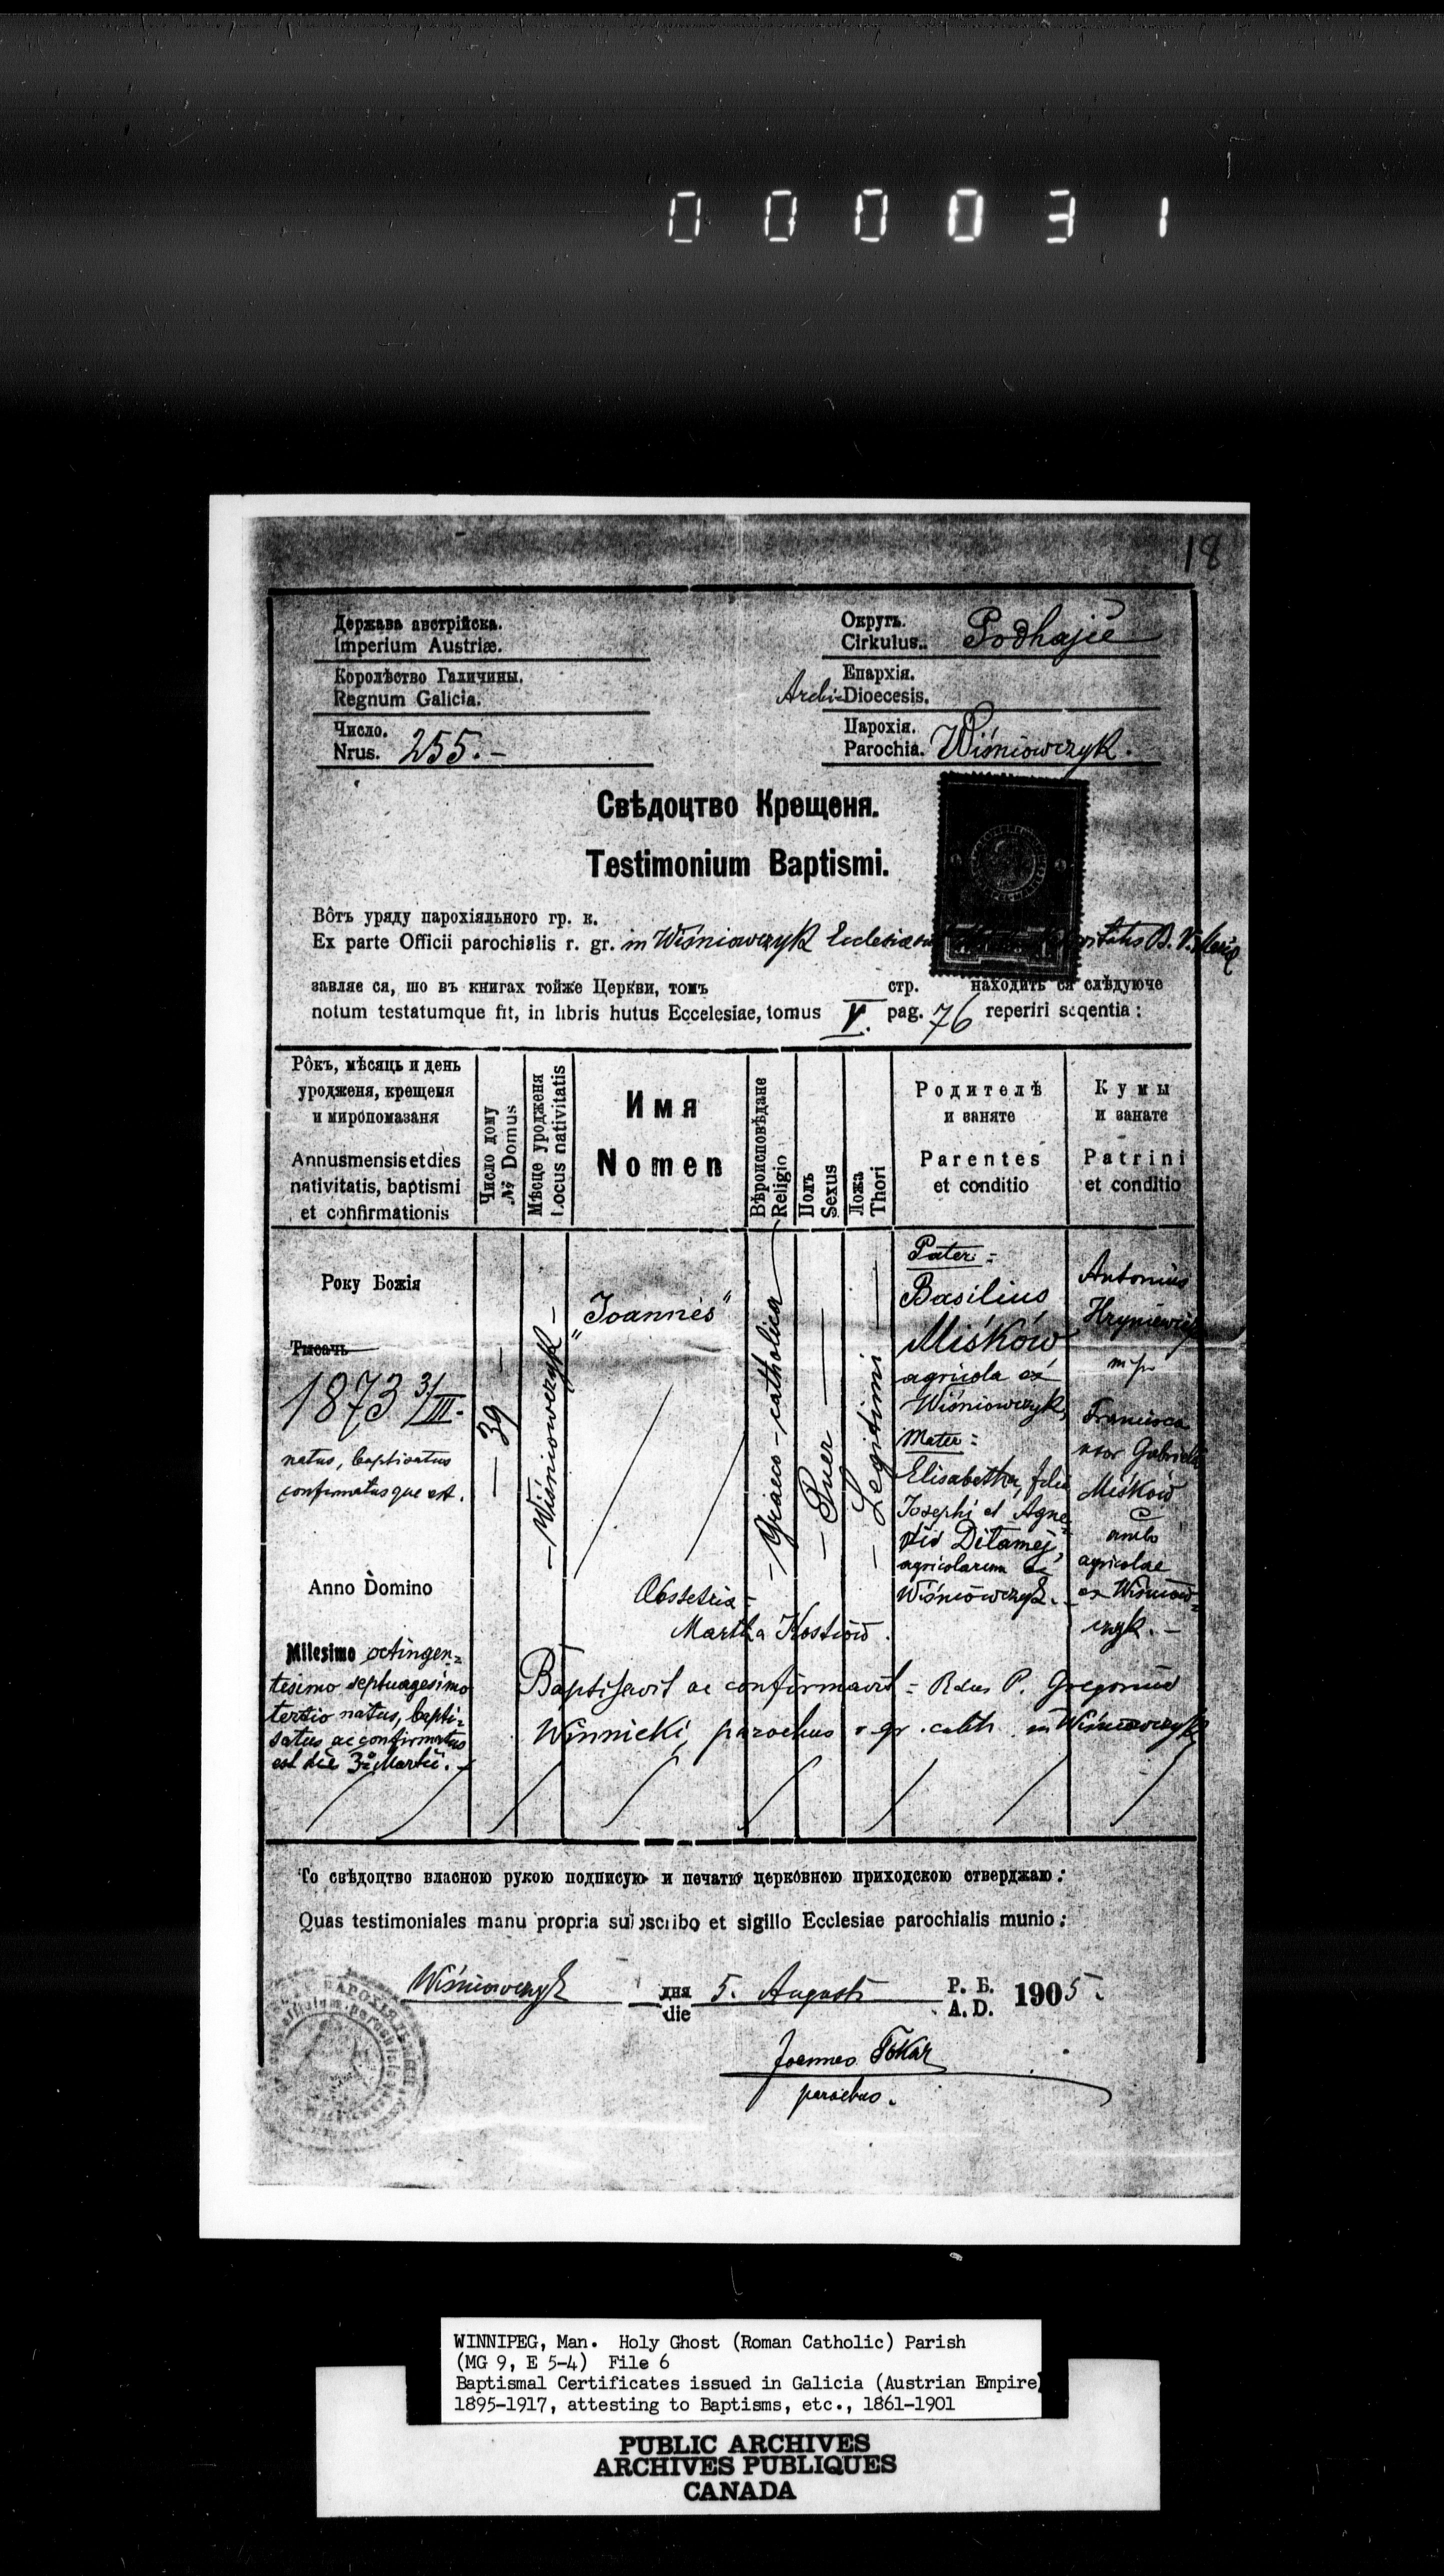 000031
18
Держава австрійска.
Imperium Austriæ.
Королѣвство Галичины.
Regnum Galicia.
Число.
Nrus. 255.-
Округъ.
Cirkulus.. Podhajie
Епархія.
Archi-Dioecesis.
Парохія.
Parochia. Wiśniowczyk.
Свѣдоцтво Крещеня.
Testimonium Baptismi.
Вôтъ уряду парохіяльного гр. к.
Ex parte Officii parochialis r. gr. in Wiśniowczyk Ecclesiae B. V. Mariae
завляе ся, шо въ книгах тойже Церкви, томъ стр. находить ся слѣдуюче
notum testatumque fit, in libris hutus Eccelesiae, tomus V. pag. 76 reperiri seqentia :
Рôкъ, мѣсяць и день
уродженя, крещеня
и миропомазаня
Annus mensis et dies
nativitatis, baptismi
et confirmationis
Число дому
№ Domus
Мѣсце уродженя
Locus nativitatis
Имя
Nomen
Вѣроисповѣдане
Religio
Полъ
Sexus
Ложа
Thori
Родителѣ
и заняте
Parentes
et conditio
Кумы
и занате
Patrini
et conditio
Року Божія
Тысачь
1873 3/III.
natus, baptisatus
confirmatusque est.
Anno Domino
Milesimo octingen=
tesimo septuagesimo
tertio natus, bapti=
satus ac confirmatus
est die 3ª Martii.
— 39 —
- Wiśniowczyk -
"Joannes"
- Graeco-catholica
- Puer
- Legitimi
Pater:
Basilius
Miśków
agricola ex
Wiśniowczyk,
Mater:
Elisabetha, filia
Josephi et Agne=
tis Ditamej,
agricolarum ex
Wiśniowczyk. -
Antonius
Hryniewicz
m/p
Francisca
uxor Gabrielis
Miśków
ambo
agricolae
ex Wiśniow=
czyk. -
Obstetrix =
Martha Kostiów.
Baptisavit ac confirmavit = Rdus P. Gregorius
Winnicki, parochus r. gr. cath. in Wiśniowczyk
То свѣдоцтво власною рукою подписую и печатю церковною приходскою стверджаю:
Quas testimoniales manu propria subscribo et sigillo Ecclesiae parochialis munio:
Wiśniowczyk дня die 5. Augusti Р. Б. A. D. 1905.
Joannes Tokar
parochus.
WINNIPEG, Man. Holy Ghost (Roman Catholic) Parish
(MG 9, E 5-4) File 6
Baptismal Certificates issued in Galicia (Austrian Empire)
1895-1917, attesting to Baptisms, etc., 1861-1901
PUBLIC ARCHIVES
ARCHIVES PUBLIQUES
CANADA